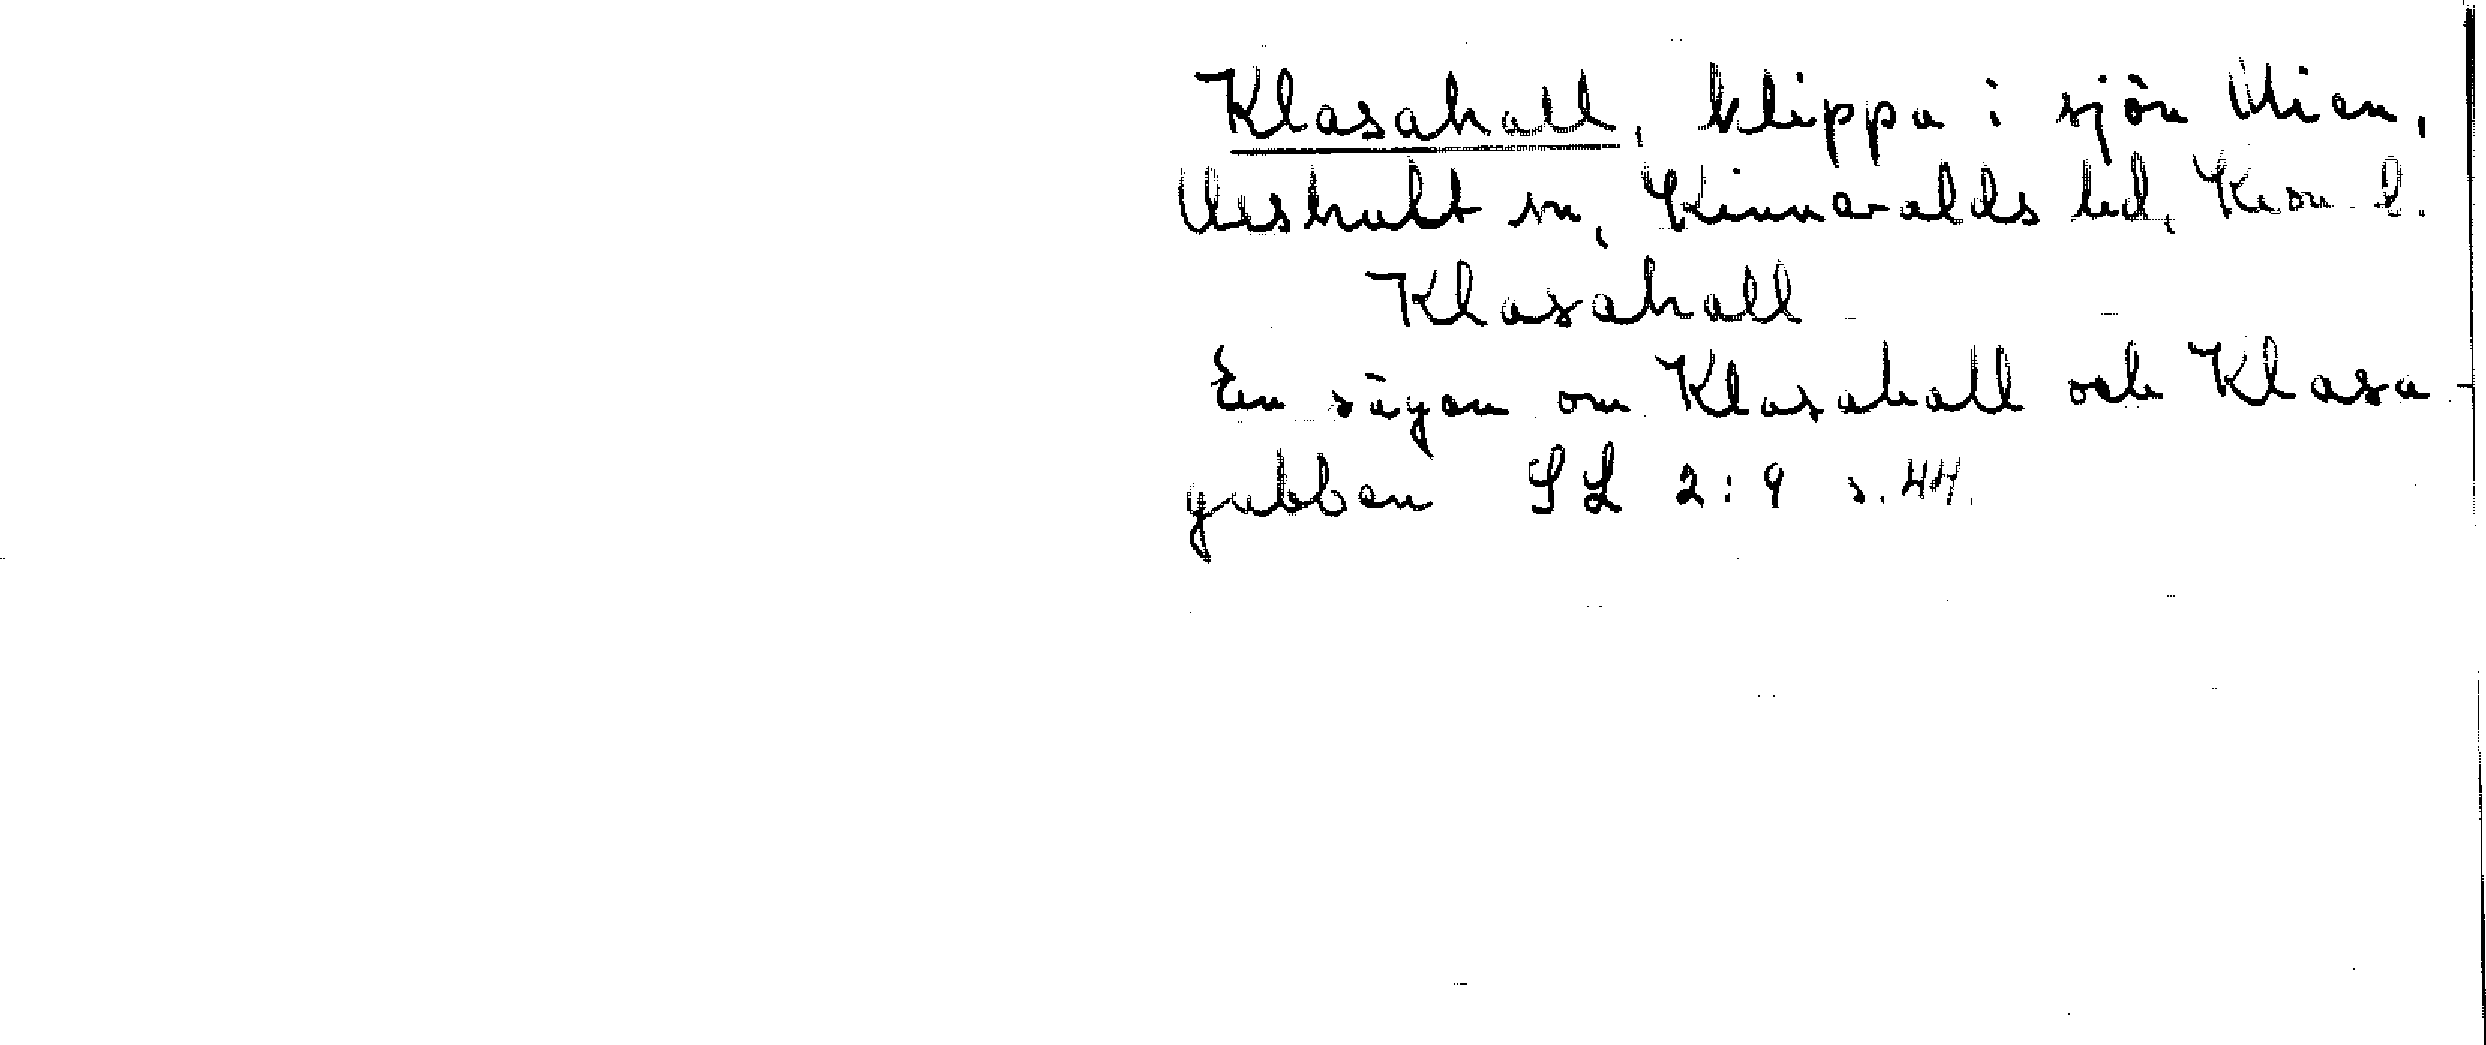 Klasahall, klippa i sjön Mien,
Urshult sn, Kinnevalds hd, Kron l.
Klasahall
En sägen om Klasahall och Klasa-
gubben SL 2:9 s. 44.